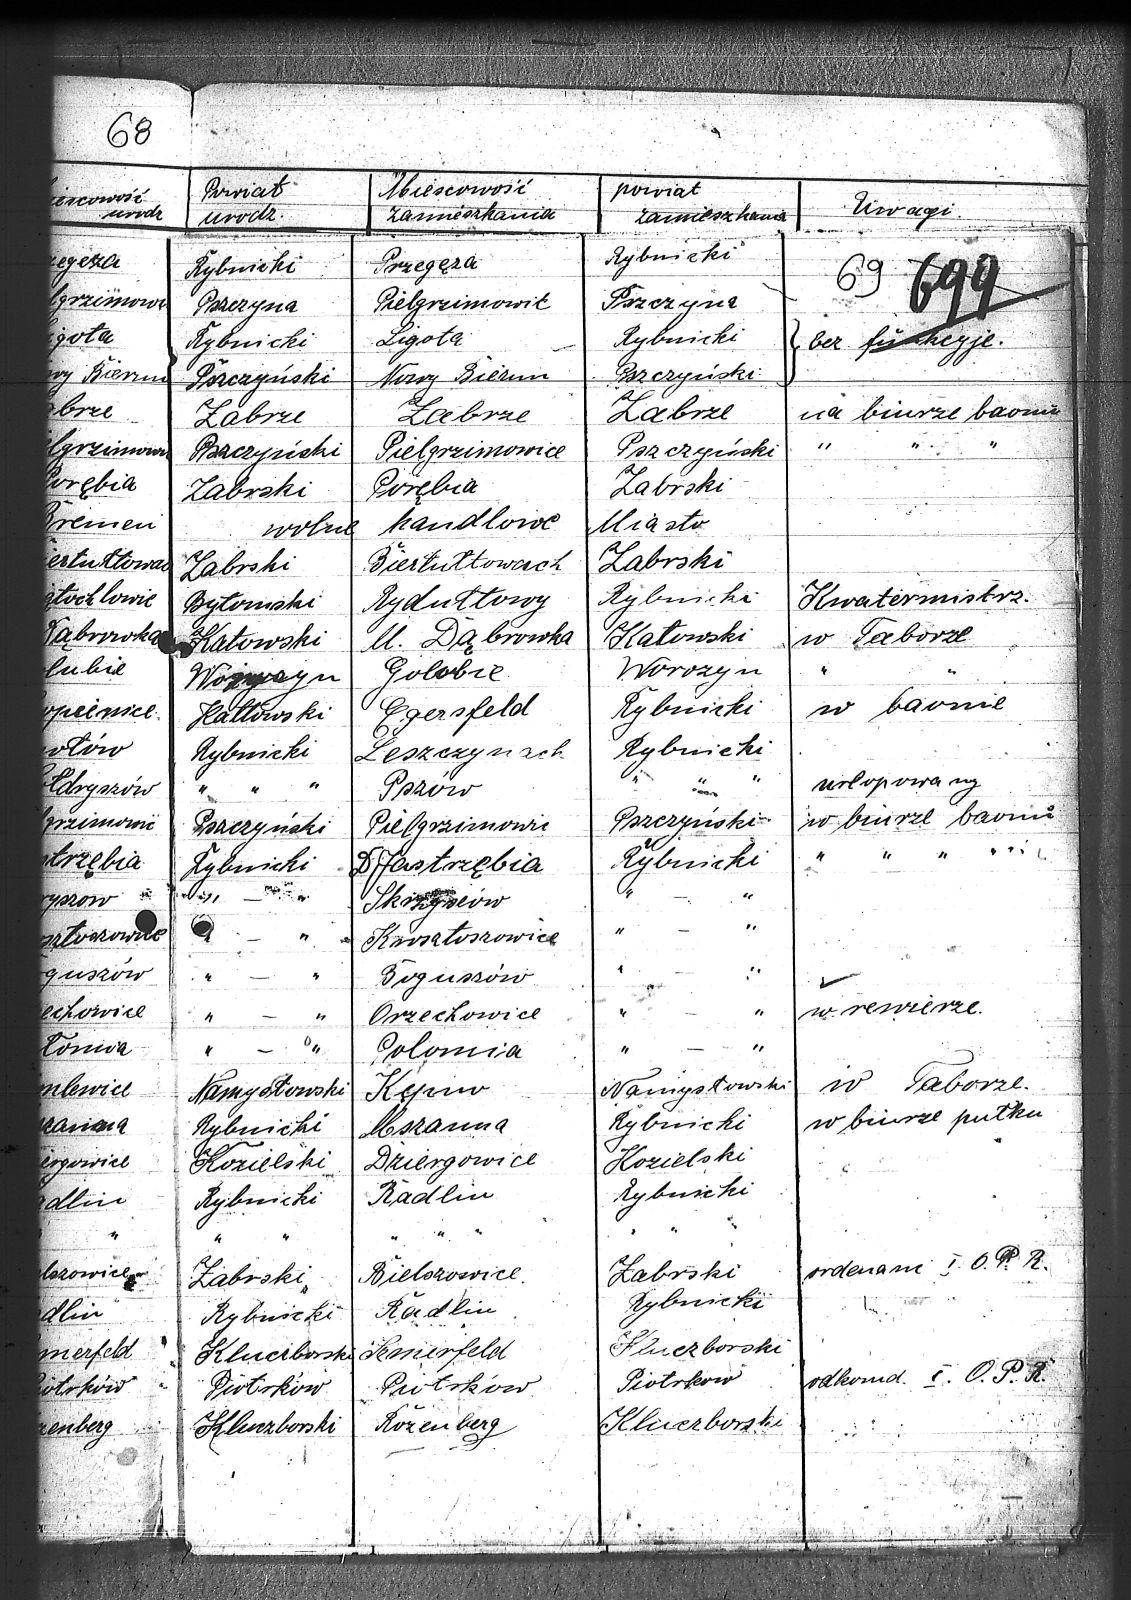 68
iescowość urodz Powiat urodz. Miescowość zamieszkania powiat zamieszkania Uwagi.
69 699
zegęza Rybnicki Przegęza Rybnicki
lgrzimowi Pszczyna Pielgrzimowic Pszczyna
igota Rybnicki Ligota Rybnicki } bez funkcyje.
wy Bierun Pszczyński Nowy Bierun Pszczyński
abrze Zabrze Zabrze Zabrze na biurze baonu
lgrzimowi Pszczyński Pielgrzimowice Pszczyński " " "
orębia Zabrski Porębia Zabrski
Bremen wolne handlowe Miasto
iertułtowac Zabrski Biertułtowach Zabrski
ętochlowic Bytomski Rydułtowy Rybnicki Kwatermistrz.
Dąbrowka Katowski M. Dąbrowka Katowski w Taborze
lubie Golobie Worozyn " "
opeinice. Kattowski Egersfeld Rybnicki w baonie
otów Rybnicki Leszczynach Rybnicki
ołdryszów " " " Pszów " " " urlopowany
grzimowi Pszczyński Pielgrzimowic Pszczyński w biurze baonu
strzębia Rybnicki D/Jastrzębia Rybnicki " " " "
ryszow " — " " — "
sztoszowice " — " Krosztoszowice " — "
oguszów " — " Boguszów " — "
echowice " — " Orzechowice " — " w rewierze.
łomia " — " Polomia " — "
mlewice Namysłowski Kępno Namysłowski w Taborze.
szanna Rybnicki Mszanna Rybnicki w biurze pułku
iergowice Kozielski Dziergowice Kozielski
adlin Rybnicki Radlin Rybnicki
" " " " " " " " "
elszowice Zabrski Bielszowice. Zabrski ordenans I O. P. R.
adlin Rybnicki Radlin Rybnicki
merfeld Kluczborski Simerfeld Kluczborski
iotrków Piotrków Piotrków Piotrkow odkomd. I. O. P. R.
zenberg Kluczborski Rozenberg Kluczborski